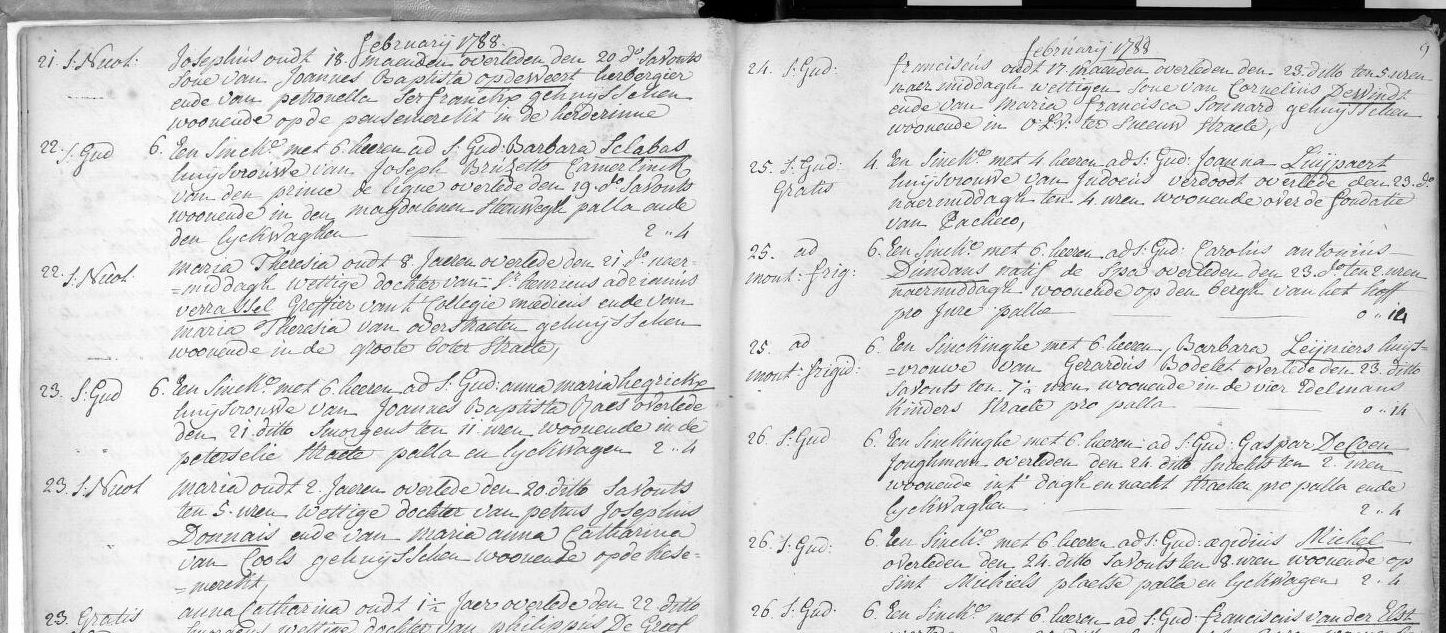 februarij 1788.
21. S: Nicol: Josephus oudt 18. maenden overleden den 20 d.o savonts
sone van Joannes Baptista opdeweert herbergier
ende van petronella Serfranckx gehuijsschen
woonende op de pensemerckt in de herderinne
22. S: Gud 6. Een Sinck.e met 6 heeren ad S: Gud: Barbara Sclabas
huijsvrouwe van Joseph Brizello Camerlinck
van den prince de Ligne overlede den 19. d.o savonts
woonende in den magdalenen steenwegh palla ende
den lyckwaghen 2 „ 4
22. S: Nicol maria Theresia oudt 8 Jaeren overlede den 21 d.o naer=
=middagh wettige dochter van S.r henricus adrianus
verrassel Greffier van t' Collegie mediens ende van
maria Theresia van overstraeten gehuijsschen
woonende in de groote boter straete,
23. S: Gud 6. Een Sinck.e met 6 heeren ad S: Gud: anna maria hegrickx
huijsvrouwe van Joannes Baptista Raes overlede
den 21 ditto smorgens ten 11 uren woonende in de
peterselie straete palla en lyckwagen 2 „ 4
23. S: Nicol maria oudt 2. Jaeren overlede den 20 ditto savonts
ten 5. uren wettige dochter van petrus Josephus
Donnais ende van maria anna Catharina
van Cools gehuijsschen woonende op de kese=
=merckt,
23. Gratis anna Catharina oudt 1½ Jaer overlede den 22 ditto
smorgens wettige dochter van philippus De Greef
februarij 1788
9
24. S: Gud: franciscus oudt 17 maenden overleden den 23. ditto ten 5. uren
naermiddagh wettigen sone van Cornelius Dewindt
ende van maria francisca Sonnard gehuijsschen
woonende in O: L: V: ter Sneeuw straete,
25. S: Gud: 4. Een Sinck.e met 4 heeren ad S: Gud: Joanna Luijpaert
Gratis huijsvrouwe van Judocus verdoodt overlede den 23. d.o
naermiddagh ten 4. uren woonende over de fondatie
van Pacheco,
25. ad 6. Een Sinck.e met 6. heeren ad S: Gud: Carolus antonius
mont: frig: Dundans natif de Spa overleden den 23. d.o ten 2. uren
naermiddagh woonende op den bergh van het hoff
pro jure palla 0 „ 14
25. ad 6. Een Sinckinghe met 6 heeren, Barbara Leijniers huijs=
mont: frigid: =vrouwe van Gerardus Bodelet overlede den 23. ditto
savonts ten 7½ uren woonende in de vier Edelmans
kinders straete pro palla 0 „ 14
26. S: Gud 6. Een Sinckinghe met 6 heeren ad S: Gud: Gaspar De Coen
Jonghman overleden den 24 ditto snachts ten 2. uren
woonende in t' dagh en nacht straetien pro palla ende
lyckwaghen 2 „ 4
26. S: Gud: 6. Een Sinck.e met 6 heeren ad S: Gud: ægidius Michel
overleden den 24 ditto savonts ten 8 uren woonende op
Sint Michiels plaetse palla en lyckwagen 2 „ 4
26 S: Gud: 6. Een Sinck.e met 6 heeren ad S: Gud franciscus van der Elst